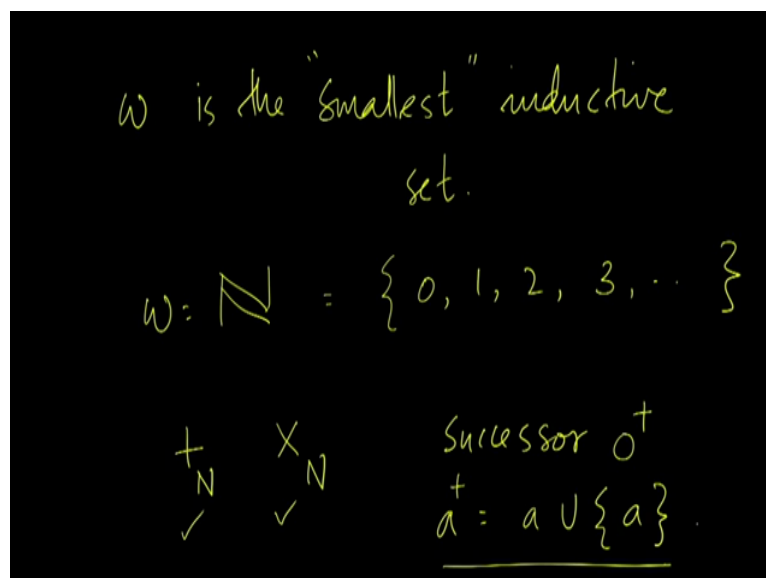 ω is the "smallest" inductive
set.
ω = ℕ = { 0, 1, 2, 3, .. }
+_N ×_N successor 0⁺
✓ ✓ a⁺ = a ∪ {a}.